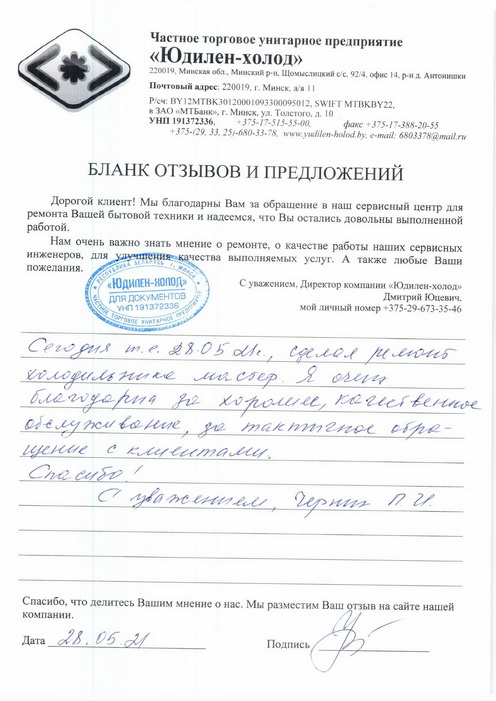 Частное торговое унитарное предприятие
«Юдилен-холод»
220019, Минская обл., Минский р-н, Щомыслицкий с/с, 92/4, офис 14, р-н д. Антонишки
Почтовый адрес: 220019, г. Минск, а/я 11
Р/сч: BY12MTBK30120001093300095012, SWIFT MTBKBY22,
в ЗАО «МТБанк», г. Минск, ул. Толстого, д. 10
УНП 191372336, +375-17-515-55-00, факс +375-17-388-20-55
+375-(29, 33, 25)-680-33-78, www.yudilen-holod.by, e-mail: 6803378@mail.ru
БЛАНК ОТЗЫВОВ И ПРЕДЛОЖЕНИЙ
Дорогой клиент! Мы благодарны Вам за обращение в наш сервисный центр для
ремонта Вашей бытовой техники и надеемся, что Вы остались довольны выполненной
работой.
Нам очень важно знать мнение о ремонте, о качестве работы наших сервисных
инженеров, для улучшения качества выполняемых услуг. А также любые Ваши
пожелания.
С уважением, Директор компании «Юдилен-холод»
Дмитрий Юцевич.
мой личный номер +375-29-673-35-46
РЕСПУБЛИКА БЕЛАРУСЬ г. МИНСК
«ЮДИЛЕН-ХОЛОД»
ДЛЯ ДОКУМЕНТОВ
УНП 191372336
ЧАСТНОЕ ТОРГОВОЕ УНИТАРНОЕ ПРЕДПРИЯТИЕ
Сегодня т.е. 28.05 21г., сделал ремонт
холодильника мастер. Я очень
благодарна за хорошее, качественное
обслуживание, за тактичное обра-
щение с клиентами.
Спасибо!
С уважением, Черник П.И.
Спасибо, что делитесь Вашим мнение о нас. Мы разместим Ваш отзыв на сайте нашей
компании.
Дата 28.05.21 Подпись